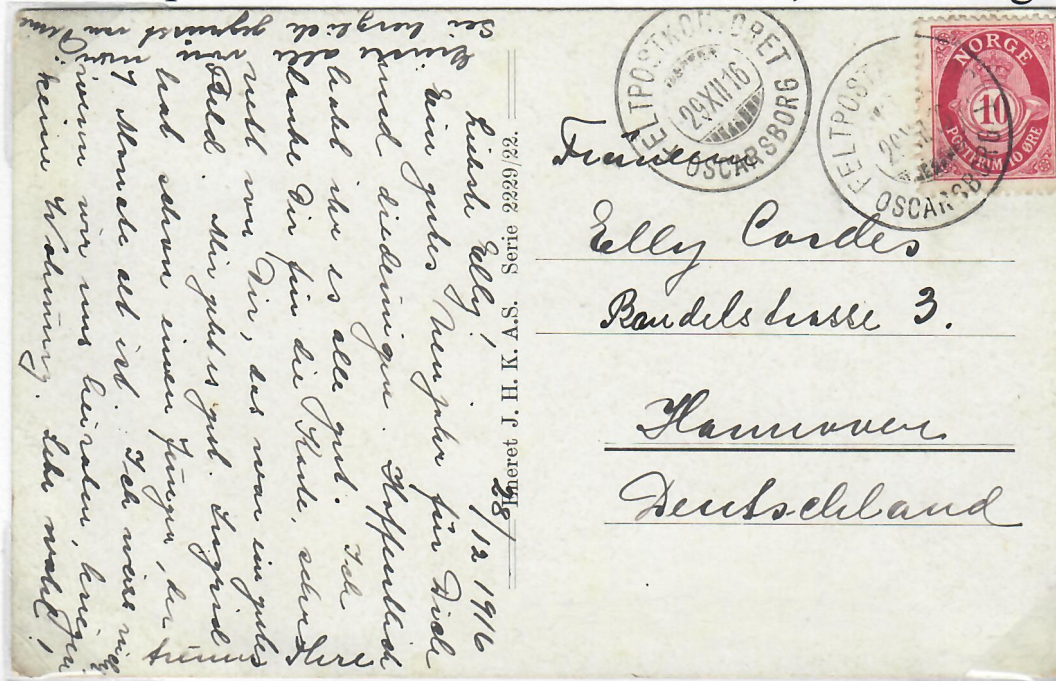 FELTPOSTKONTORET 9
29 XII 16
OSCARSBORG
FELTPOST
OSCARSBORG
NORGE
10
POSTFRIM 10 ØRE
Elly Cordes
Bandelstrasse 3.
Hannover
Deutschland
Eneret J. H. K. A.S. Serie 2229/22.
28/12 1916
Liebste Elly!
Ein gutes Neujahr für Dich
und diedeinigen. Hoffentlich
habt ihr es alle gut. Ich
danke Dir für die Karte, sehr
nett von Dir, das war ein gutes
Bild. Mir geht es gut. Ingrid
hat schon einen Jungen, der
7 Monate alt ist. Ich weiss nicht
wenn wir uns heiraten, kriegen
keine Wohnung. Lebe wohl!
Grüsse alle von mir
Sei herzlich gegrüsst von
Ihre